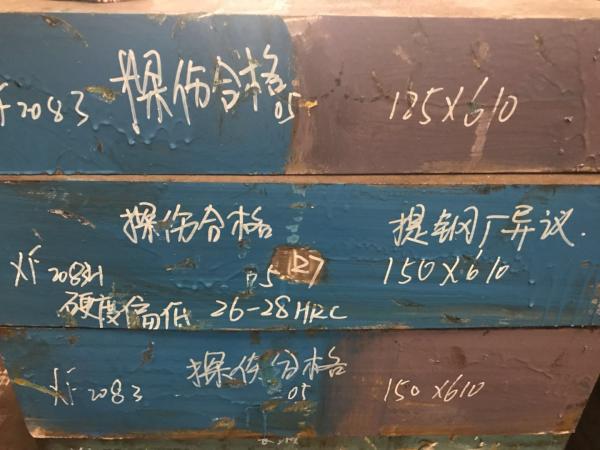 F2083 探伤合格 05 125X610
探伤合格 提钢厂异议.
XF2083H 05 127 150X610
硬度偏低 26-28HRC
XF2083 探伤合格 05 150X610